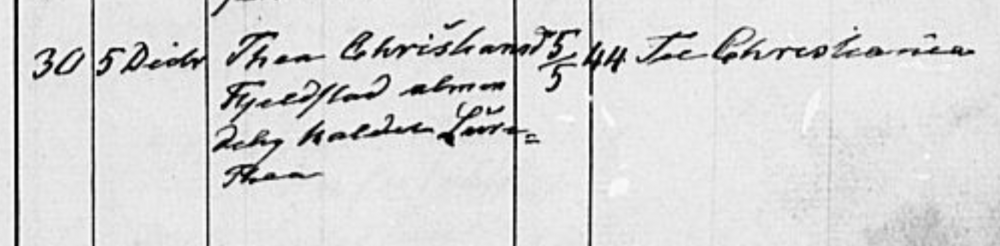 30 5 Decbr Thea Christiansd 5/5 44 Til Christiania
Fjeldstad almin
delig kaldet Lure=
Thea